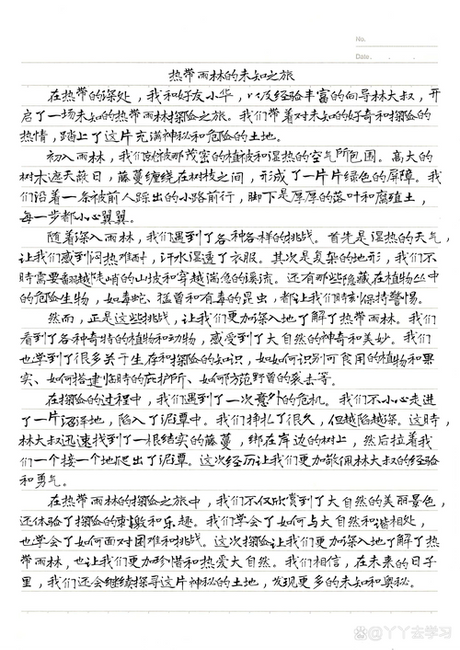 No.
Date.
热带雨林的未知之旅
在热带的深处，我和好友小华，以及经验丰富的向导林大叔，开
启了一场未知的热带雨林探险之旅。我们带着对未知的好奇和探险的
热情，踏上了这片充满神秘和危险的土地。
初入雨林，我们就被那茂密的植被和湿热的空气所包围。高大的
树木遮天蔽日，藤蔓缠绕在树枝之间，形成了一片片绿色的屏障。我
们沿着一条被前人踩出的小路前行，脚下是厚厚的落叶和腐殖土，
每一步都小心翼翼。
随着深入雨林，我们遇到了各种各样的挑战。首先是湿热的天气，
让我们感到闷热难耐，汗水湿透了衣服。其次是复杂的地形，我们不
时需要翻越陡峭的山坡和穿越湍急的溪流。还有那些隐藏在植物丛中
的危险生物，如毒蛇、猛兽和有毒的昆虫，都让我们时刻保持警惕。
然而，正是这些挑战，让我们更加深入地了解了热带雨林。我们
看到了各种奇特的植物和动物，感受到了大自然的神奇和美妙。我们
也学到了很多关于生存和探险的知识，如如何识别可食用的植物和果
实、如何搭建临时的庇护所、如何防范野兽的袭击等。
在探险的过程中，我们遇到了一次意外的危机。我们不小心走进
了一片沼泽地，陷入了泥潭中。我们挣扎了很久，但越陷越深。这时，
林大叔迅速找到了一根结实的藤蔓，绑在岸边的树上，然后拉着我
们一个接一个地爬出了泥潭。这次经历让我们更加敬佩林大叔的经验
和勇气。
在热带雨林的探险之旅中，我们不仅欣赏到了大自然的美丽景色，
还体验了探险的刺激和乐趣。我们学会了如何与大自然和谐相处，
也学会了如何面对困难和挑战。这次探险让我们更加深入地了解了热
带雨林，也让我们更加珍惜和热爱大自然。我们相信，在未来的日子
里，我们还会继续探寻这片神秘的土地，发现更多的未知和奥秘。
@丫丫去学习